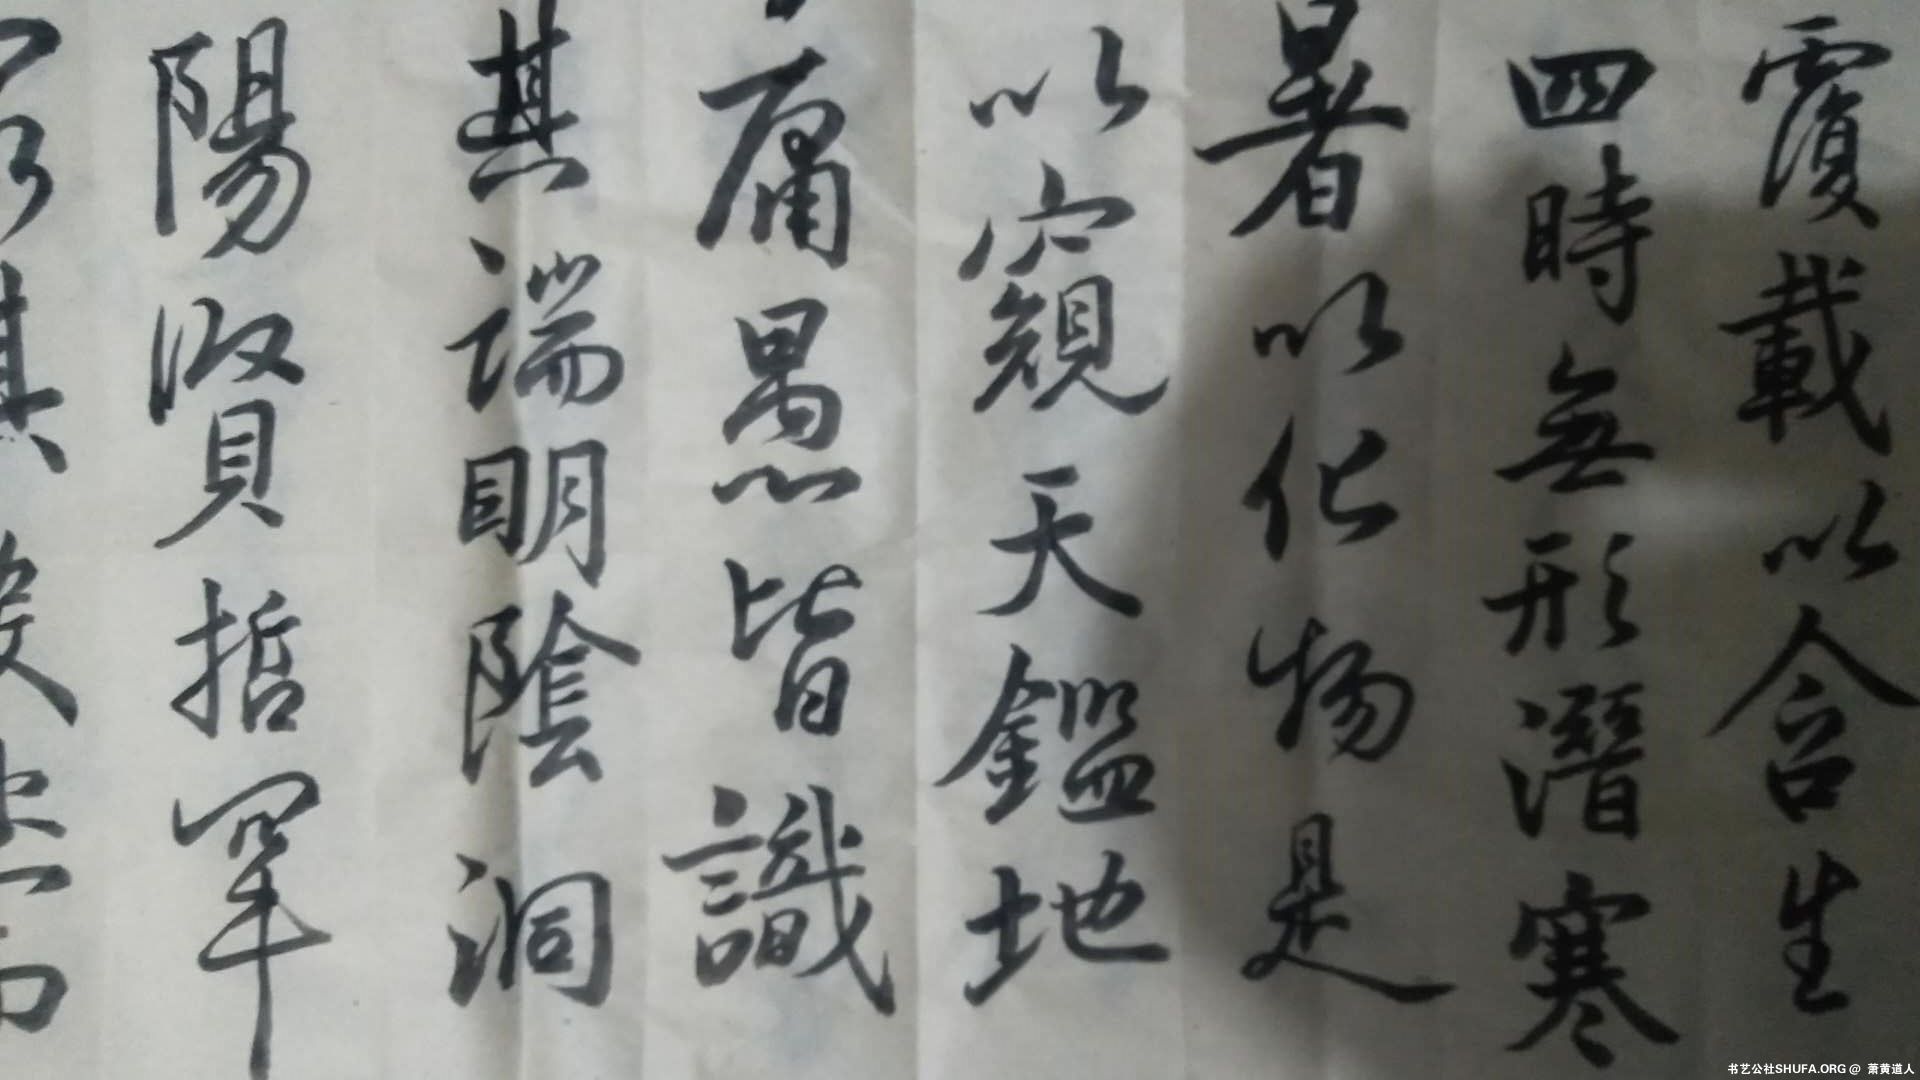 覆載以含生
四時無形潛寒
暑以化物是
以窺天鑑地
庸愚皆識
其端明陰洞
陽賢哲罕
窮其數
书艺公社SHUFA.ORG @ 萧黄道人